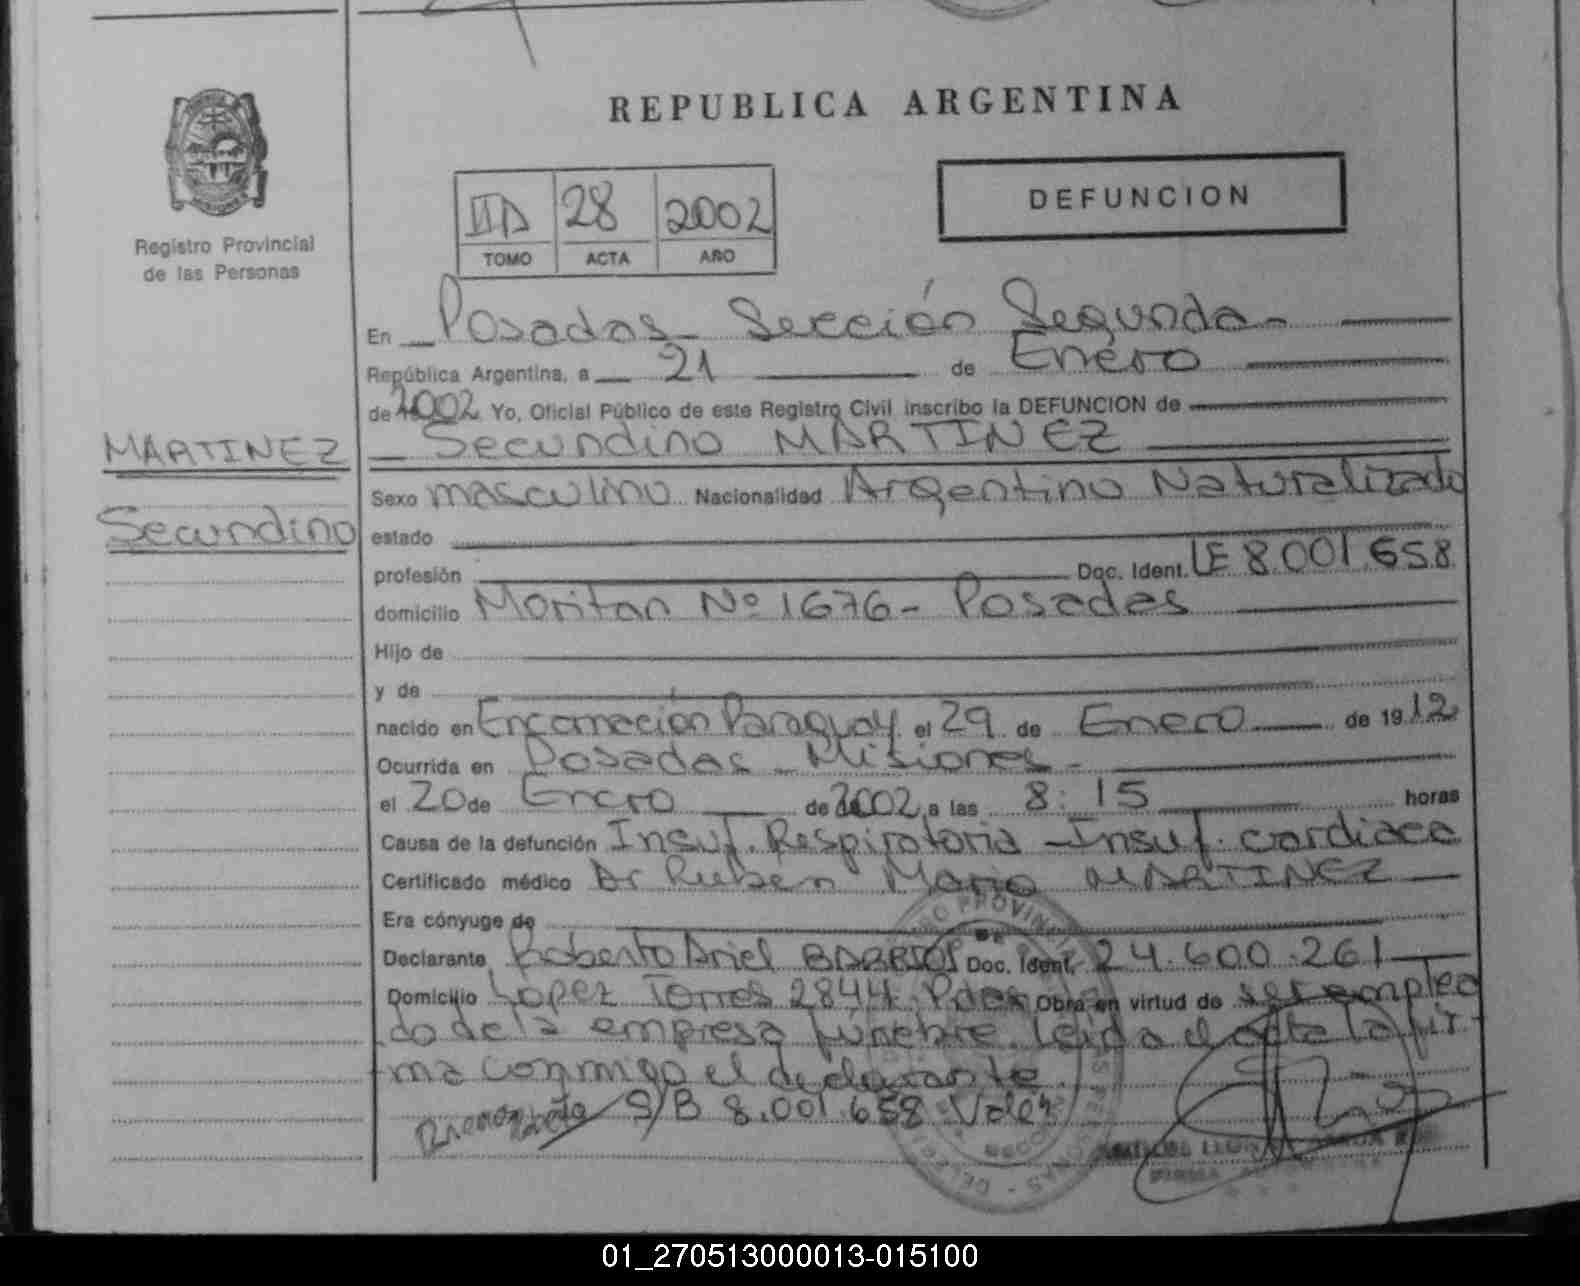 REPUBLICA ARGENTINA
Registro Provincial
de las Personas
IID 28 2002
TOMO ACTA AÑO
DEFUNCION
En Posadas Sección Segunda
República Argentina, a 21 de Enero
de 2002 Yo, Oficial Público de este Registro Civil inscribo la DEFUNCION de
MARTINEZ
Secundino
Secundino MARTINEZ
Sexo masculino Nacionalidad Argentino Naturalizado
estado
profesión Doc. Ident. LE 8.001.658
domicilio Moritan Nº 1676 - Posadas
Hijo de
y de
nacido en Encarnación Paraguay el 29 de Enero de 1912
Ocurrida en Posadas - Misiones -
el 20 de Enero de 2002 a las 8:15 horas
Causa de la defunción Insuf. Respiratoria - Insuf. cardiaca
Certificado médico Dr Ruben Mario MARTINEZ
Era cónyuge de
Declarante Roberto Ariel BARRIOS Doc. Ident. 24.600.261
Domicilio Lopez Torres 2844 Pdas Obra en virtud de ser emplea
do de la empresa fúnebre. Leida el acta la fir-
ma conmigo el declarante.
S/B 8.001.658 Vale
01_270513000013-015100